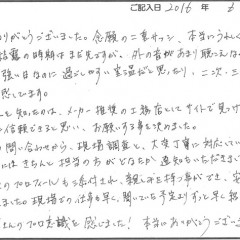 ご記入日 2016 年
ありがとうございました。念願の二重サッシ、本当にうれしく
結露の時期はまだ先ですが、外の音があまり聞こえな
強い日なのに過ごしやすい室温だと思ったり、二次、三
感じてます。
を知ったのは、メーカー推奨の工務店としてサイトで見つけ
信頼できると思い、お願いする事を決めました。
の問い合わせから、現場調査と、大変丁寧に対応してい
にはきちんと担当の方がどなたか通知もいただきまし
のプロフィールも添付され、親しみを持つ事ができ、安
ました。現場での仕事も早く、聞いていた予定よりずっと早く
さんのプロ意識を感じました!本当にありがとうござ